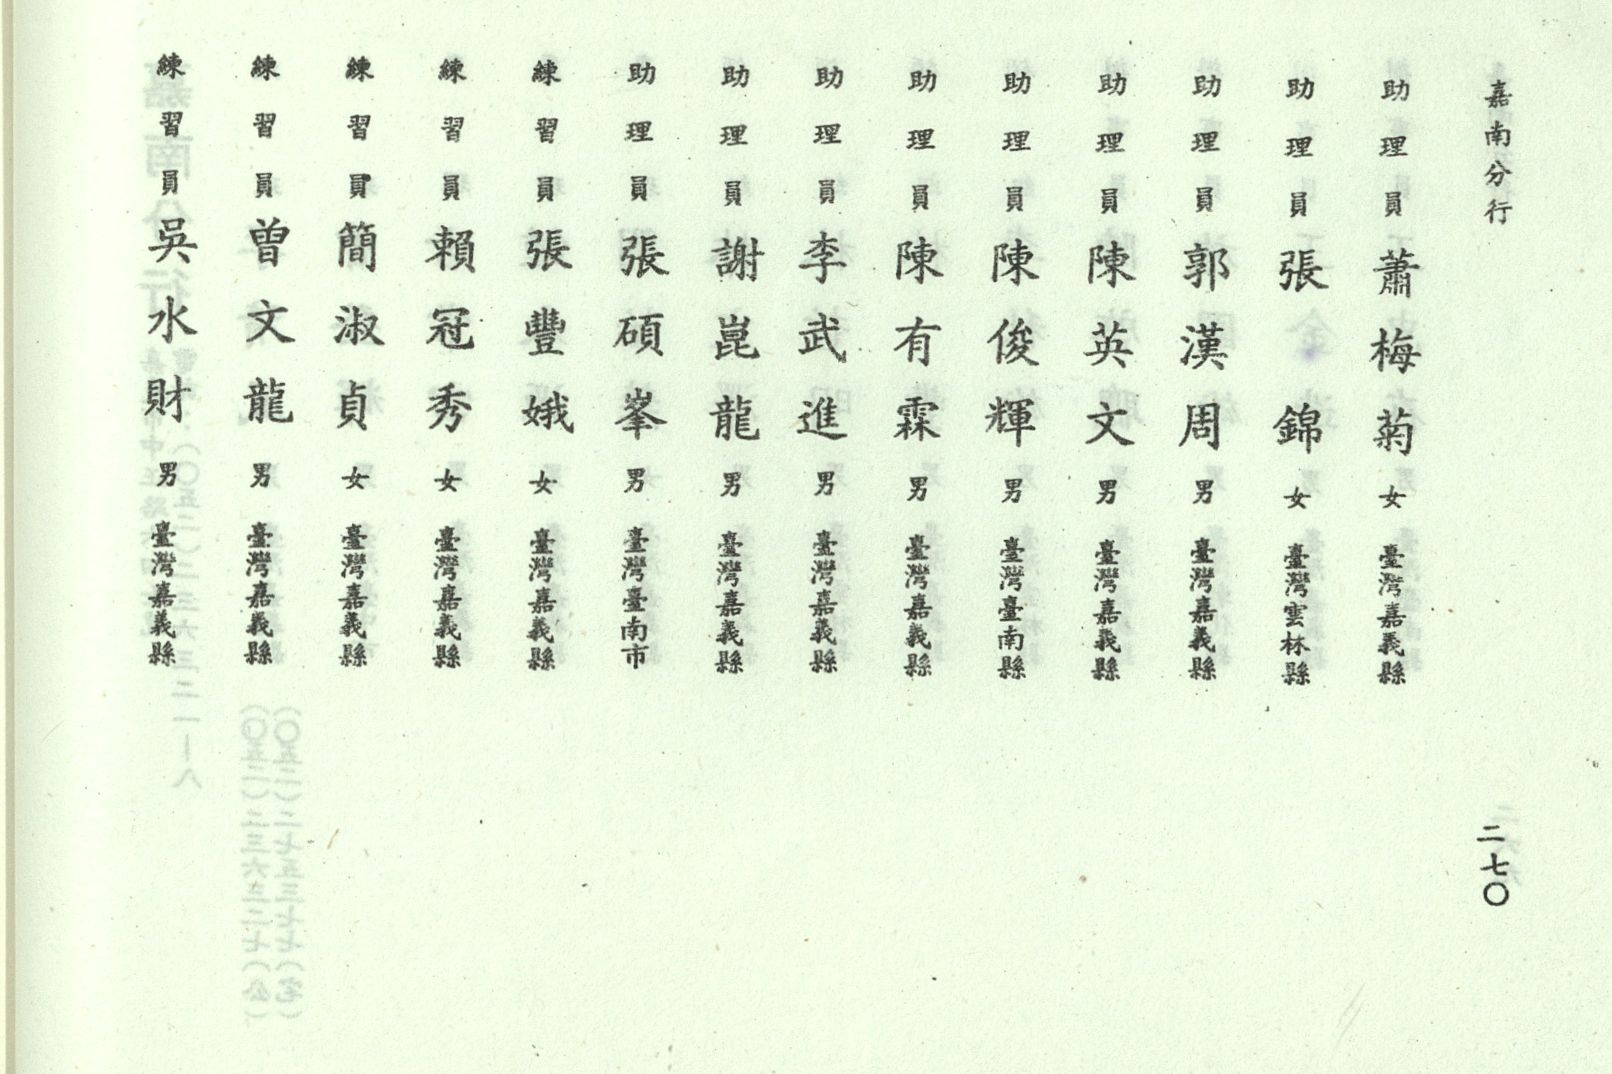 嘉南分行
助理員 蕭梅菊 女 臺灣嘉義縣
助理員 張錦 女 臺灣雲林縣
助理員 郭漢周 男 臺灣嘉義縣
助理員 陳英文 男 臺灣嘉義縣
助理員 陳俊輝 男 臺灣臺南縣
助理員 陳有霖 男 臺灣嘉義縣
助理員 李武進 男 臺灣嘉義縣
助理員 謝崑龍 男 臺灣嘉義縣
助理員 張碩峯 男 臺灣臺南市
練習員 張豐娥 女 臺灣嘉義縣
練習員 賴冠秀 女 臺灣嘉義縣
練習員 簡淑貞 女 臺灣嘉義縣
練習員 曾文龍 男 臺灣嘉義縣
練習員 吳水財 男 臺灣嘉義縣
二七〇